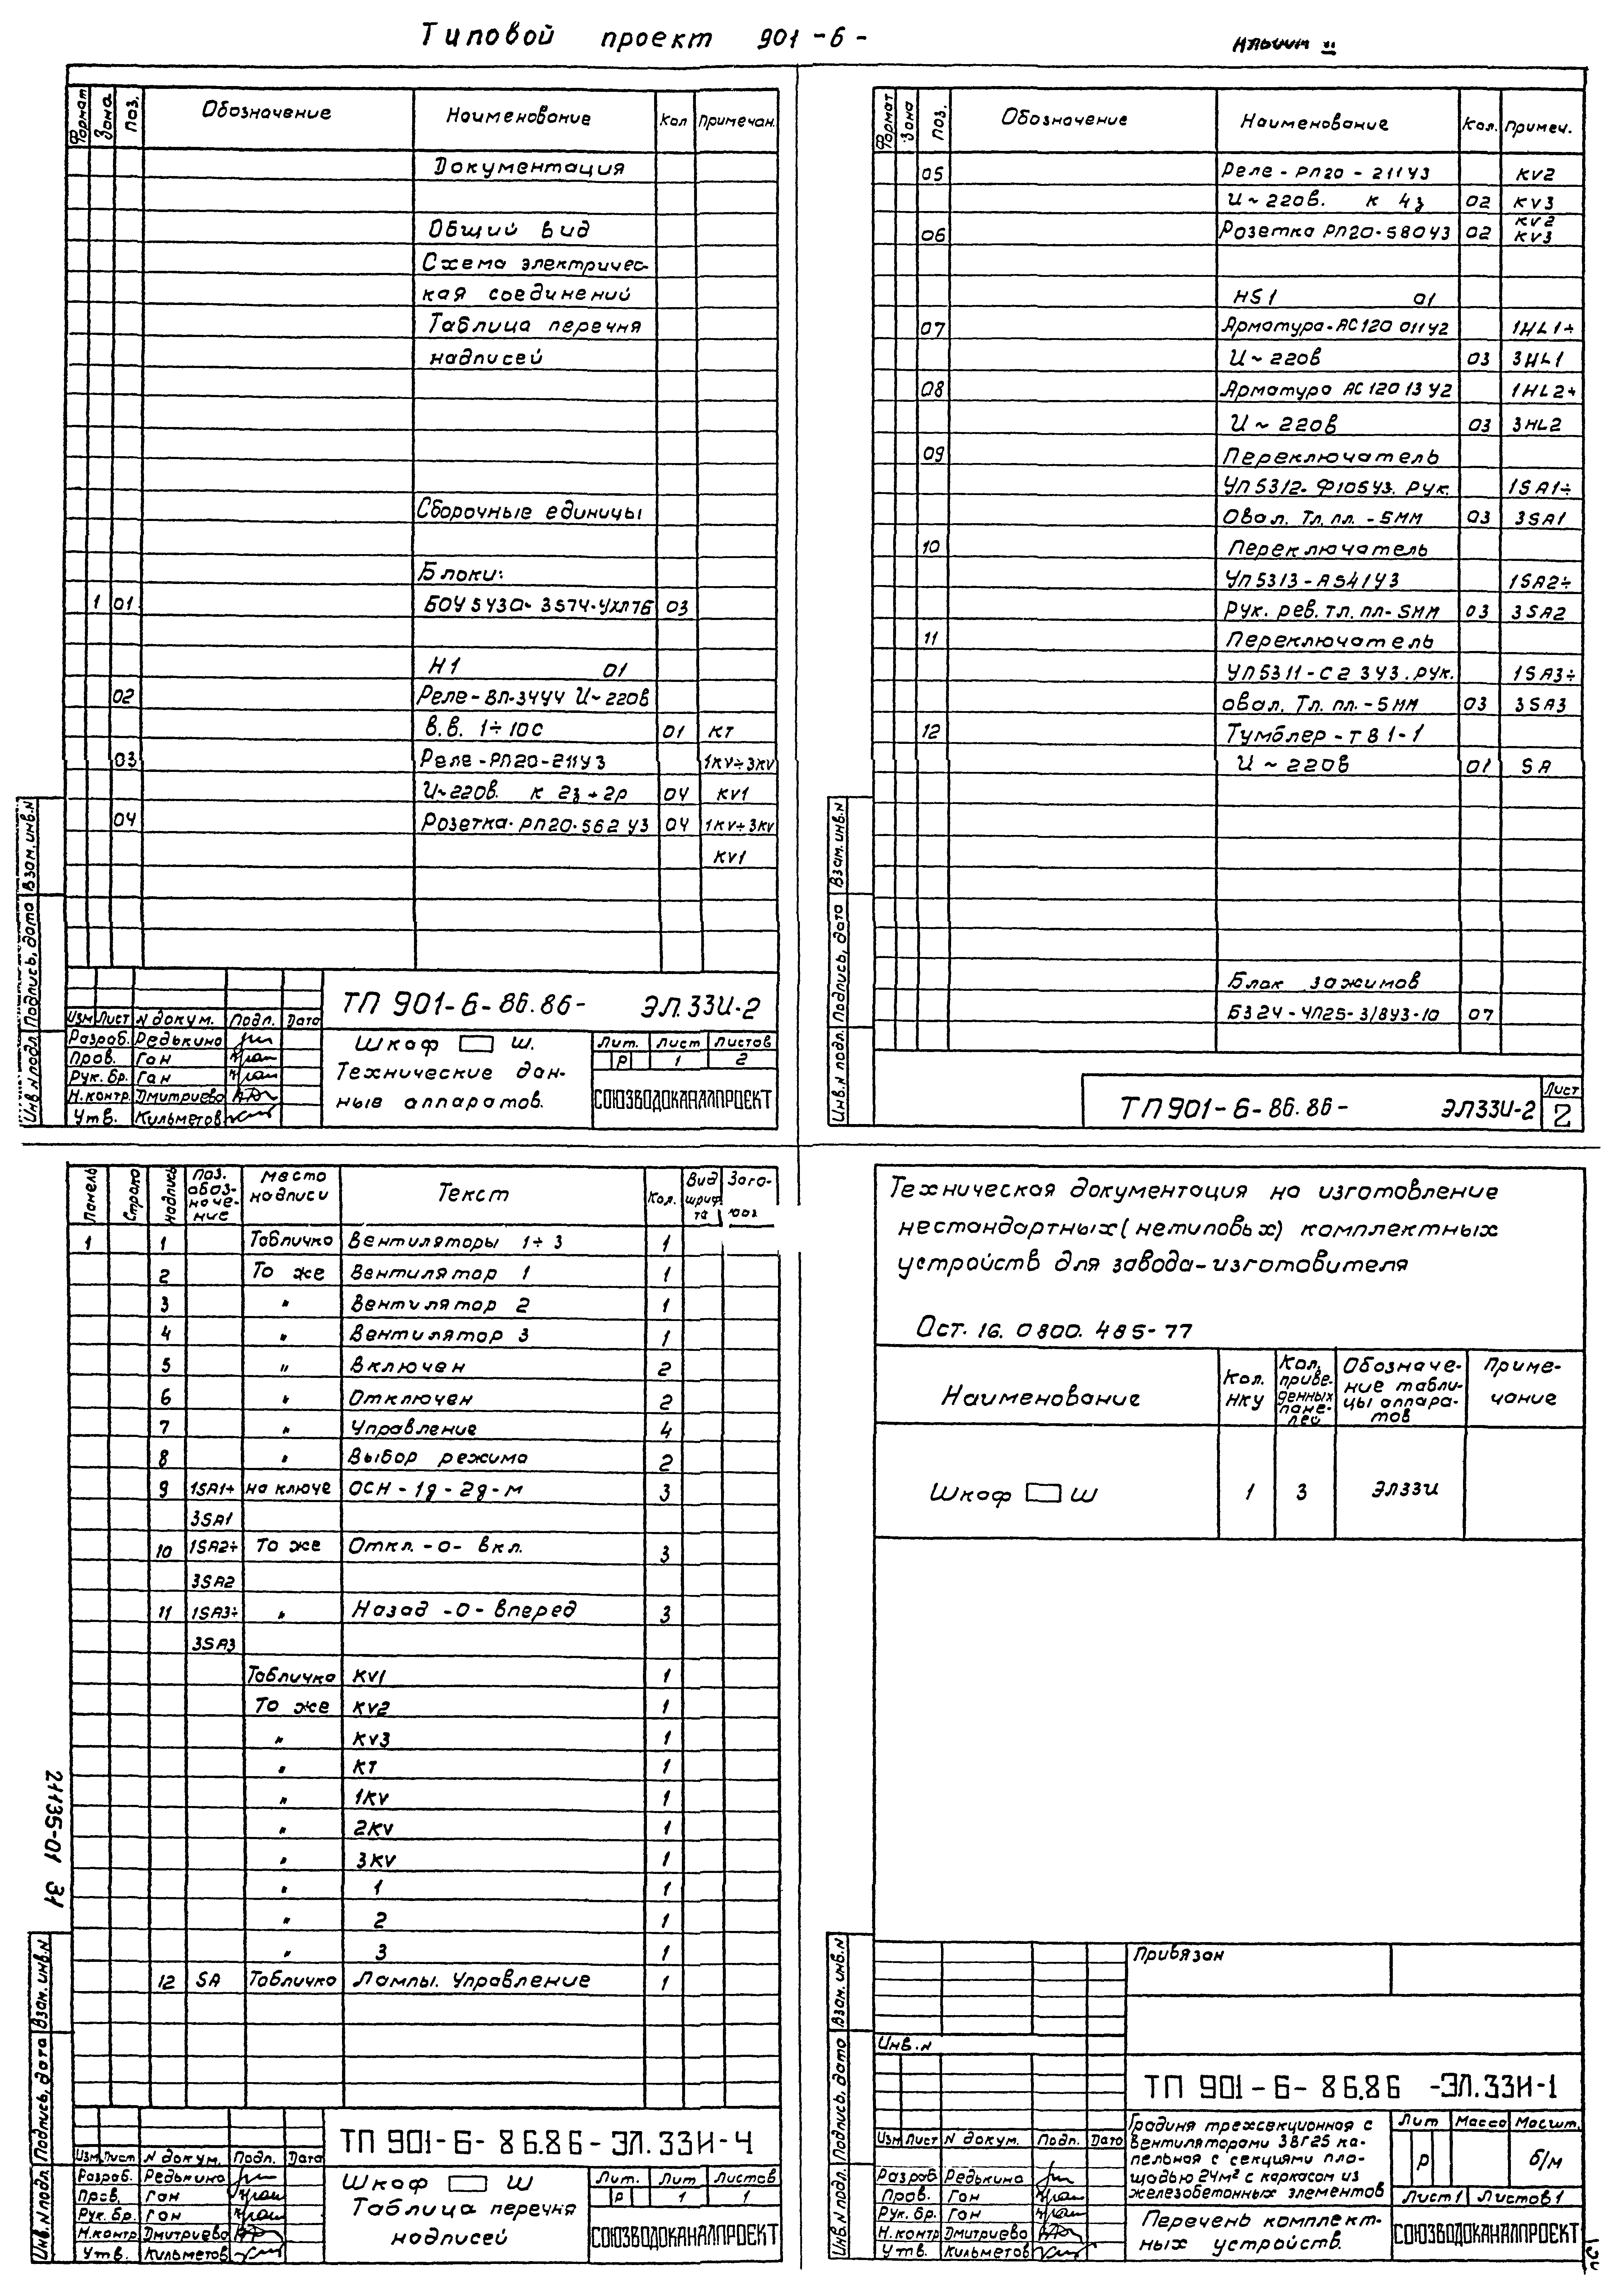 Типовой проект 901-6-
Формат Зона Поз. Обозначение Наименование Кол Примечан.
Документация
Общий вид
Схема электричес-
кая соединений
Таблица перечня
надписей
Сборочные единицы
Блоки:
1 01 БОУ5У3А-3574-УХЛ7Б 03
Н1 01
02 Реле-ВЛ-3444 U~220в
в.в. 1÷10с 01 КТ
03 Реле-РП20-211У3 1KV÷3KV
U~220в. к 2з+2р 04 KV1
04 Розетка-РП20-562 У3 04 1KV÷3KV
KV1
Изм Лист N докум. Подп. Дата
Разраб. Редькина
Пров. Ган
Рук. бр. Ган
Н.контр. Дмитриева
Утв. Кильметов
ТП 901-6-86.86- ЭЛ.33И-2
Шкаф Ш.
Технические дан-
ные аппаратов.
Лит. Лист Листов
Р 1 2
СОЮЗВОДОКАНАЛПРОЕКТ
Инв.N подл. Подпись, дата Взам.инв.N
Формат Зона Поз. Обозначение Наименование Кол. Примеч.
05 Реле-РП20-211У3 KV2
U~220в. к 4з 02 KV3
06 Розетка РП20-580У3 02 KV2
KV3
HS1 01
07 Арматура-АС120 011У2 1HL1÷
U~220в 03 3HL1
08 Арматура АС12013У2 1HL2÷
U~220в 03 3HL2
09 Переключатель
УП5312-Ф105У3. Рук. 1SA1÷
Овал. Тл. пл.-5мм 03 3SA1
10 Переключатель
УП5313-А541У3 1SA2÷
Рук. рев. тл. пл-5мм 03 3SA2
11 Переключатель
УП5311-С23У3. Рук. 1SA3÷
овал. Тл. пл.-5мм 03 3SA3
12 Тумблер-ТВ1-1
U~220в 01 SA
Блок зажимов
БЗ24-4П25-3/8У3-10 07
ТП901-6-86.86- ЭЛ33И-2
Лист
2
Инв.N подл. Подпись, дата Взам.инв.N
Панель Строка Надпись Поз. обоз-наче-ние Место надписи Текст Кол. Вид шриф-та
1 1 Табличка Вентиляторы 1÷3 1
2 То же Вентилятор 1 1
3 " Вентилятор 2 1
4 " Вентилятор 3 1
5 " Включен 2
6 " Отключен 2
7 " Управление 4
8 " Выбор режима 2
9 1SA1÷ на ключе ОСН-1д-2д-М 3
3SA1
10 1SA2÷ То же Откл.-0-вкл. 3
3SA2
11 1SA3÷ " Назад-0-вперед 3
3SA3
Табличка KV1 1
То же KV2 1
" KV3 1
" КТ 1
" 1KV 1
" 2KV 1
" 3KV 1
" 1 1
" 2 1
" 3 1
12 SA Табличка Лампы. Управление 1
21135-01 31
Изм Лист N докум. Подп. Дата
Разраб. Редькина
Пров. Ган
Рук. бр. Ган
Н.контр Дмитриева
Утв. Кильметов
ТП 901-6-86.86-ЭЛ.33И-4
Шкаф Ш
Таблица перечня
надписей
Лит. Лит Листов
Р 1 1
СОЮЗВОДОКАНАЛПРОЕКТ
Инв.N подл. Подпись, дата Взам.инв.N
Техническая документация на изготовление
нестандартных (нетиповых) комплектных
устройств для завода-изготовителя
Ост. 16. 0800. 485-77
Наименование Кол. НКУ Кол. приве-денных пане-лей Обозначе-ние табли-цы аппара-тов Приме-чание
Шкаф Ш 1 3 ЭЛ33И
Привязан
Инв.N
ТП 901-6-86.86 -ЭЛ.33И-1
Изм Лист N докум. Подп. Дата
Разраб Редькина
Пров. Ган
Рук. бр. Ган
Н.контр Дмитриева
Утв. Кильметов
Градиня трехсекционная с
вентиляторами 3ВГ25 ка-
пельная с секциями пло-
щадью 24м² с каркасом из
железобетонных элементов
Перечень комплект-
ных устройств.
Лит Масса Масшт.
Р б/м
Лист 1 Листов 1
СОЮЗВОДОКАНАЛПРОЕКТ
Инв.N подл. Подпись, дата Взам.инв.N